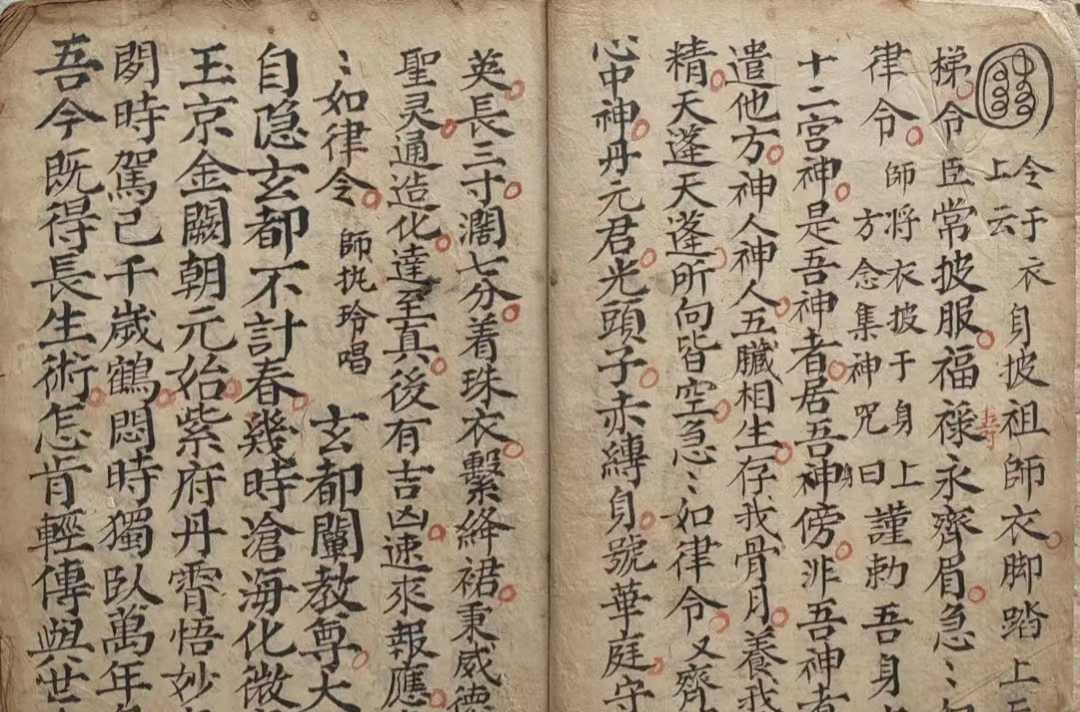 令于衣
上云
身披祖師衣脚踏上
梯令臣常披服福祿永齊眉急〻
壽
律令
師將衣披于身上
方念集神咒曰
謹勅吾身
十二宮神是吾神者居吾神傍非吾神者
身
遣他方神人神人五臟相生存我骨月養我
精天蓬天蓬所向皆空急〻如律令又齊
心中神丹元君光頭子赤縛身號華庭守
英長三寸濶七分着珠衣繫絳裙秉威德
聖灵通造化達至真後有吉凶速來報應
〻如律令
師执玲唱
玄都闡教尊大
自隐玄都不計春幾時滄海化微
玉京金闕朝元始紫府丹霄悟妙
閑時駕己千歲鶴悶時獨臥萬年
吾今既得長生術怎肯輕傳與世